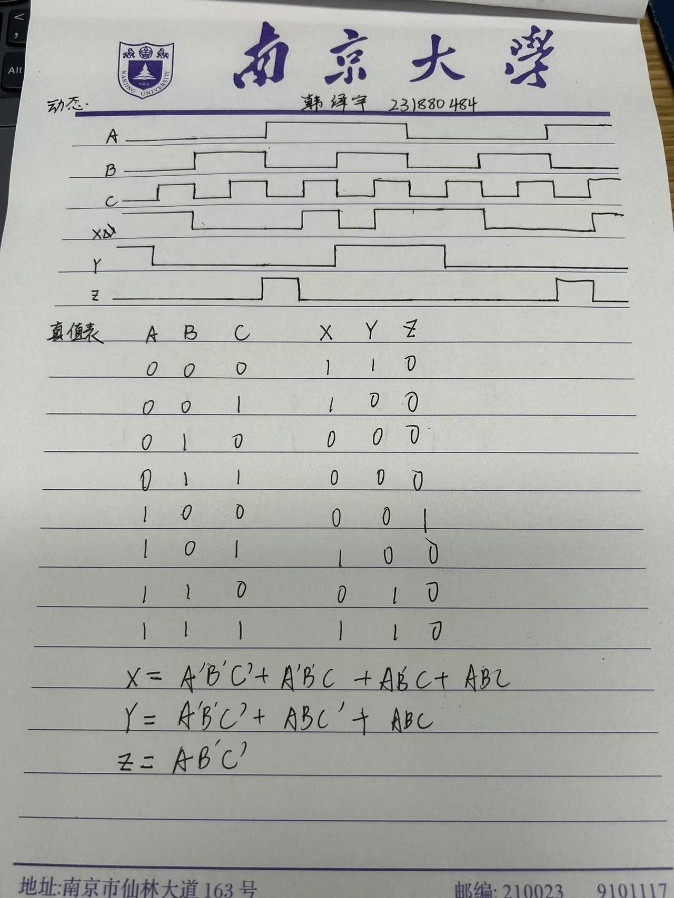 Alt
南京大学
NANJING UNIVERSITY
动态. 韩泽宇 231880484
A
B
C
X
Y
Z
真值表 A B C X Y Z
0 0 0 1 1 0
0 0 1 1 0 0
0 1 0 0 0 0
0 1 1 0 0 0
1 0 0 0 0 1
1 0 1 1 0 0
1 1 0 0 1 0
1 1 1 1 1 0
X = A'B'C' + A'B'C + AB'C + ABC
Y = A'B'C' + ABC' + ABC
Z = AB'C'
地址:南京市仙林大道 163 号 邮编: 210023 9101117